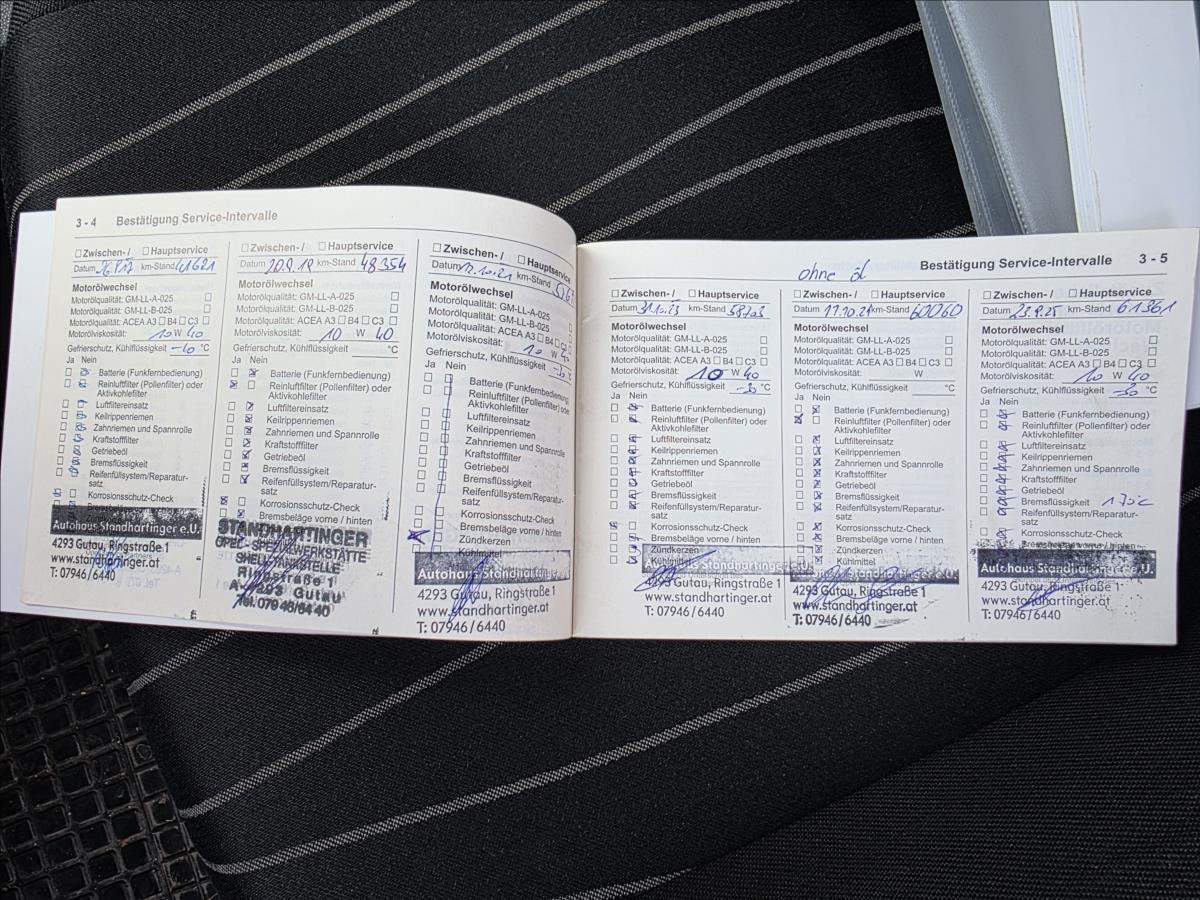 3 - 4 Bestätigung Service-Intervalle
Zwischen-/ Hauptservice
Datum km-Stand 41621
Motorölwechsel
Motorölqualität: GM-LL-A-025
Motorölqualität: GM-LL-B-025
Motorölqualität: ACEA A3 B4 C3
Motorölviskosität: 10 W 40
Gefrierschutz, Kühlflüssigkeit °C
Ja Nein
Batterie (Funkfernbedienung)
Reinluftfilter (Pollenfilter) oder
Aktivkohlefilter
Luftfiltereinsatz
Keilrippenriemen
Zahnriemen und Spannrolle
Kraftstofffilter
Getriebeöl
Bremsflüssigkeit
Reifenfüllsystem/Reparatur-
satz
Korrosionsschutz-Check
Autohaus Standhartinger e.U.
4293 Gutau, Ringstraße 1
www.standhartinger.at
T: 07946/6440
Zwischen-/ Hauptservice
Datum 20.9.19 km-Stand 48354
Motorölwechsel
Motorölqualität: GM-LL-A-025
Motorölqualität: GM-LL-B-025
Motorölqualität: ACEA A3 B4 C3
Motorölviskosität: 10 W 40
Gefrierschutz, Kühlflüssigkeit °C
Ja Nein
Batterie (Funkfernbedienung)
Reinluftfilter (Pollenfilter) oder
Aktivkohlefilter
Luftfiltereinsatz
Keilrippenriemen
Zahnriemen und Spannrolle
Kraftstofffilter
Getriebeöl
Bremsflüssigkeit
Reifenfüllsystem/Reparatur-
satz
Korrosionsschutz-Check
Bremsbeläge vorne / hinten
STANDHARTINGER
OPEL-SPEZIALWERKSTÄTTE
SHELL-TANKSTELLE
Ringstraße 1
A-4293 Gutau
Tel. 07946/6440
Zwischen-/ Hauptservice
Datum 12.10.21 km-Stand
Motorölwechsel
Motorölqualität: GM-LL-A-025
Motorölqualität: GM-LL-B-025
Motorölqualität: ACEA A3 B4 C3
Motorölviskosität: 10 W 40
Gefrierschutz, Kühlflüssigkeit -30 °C
Ja Nein
Batterie (Funkfernbedienung)
Reinluftfilter (Pollenfilter) oder
Aktivkohlefilter
Luftfiltereinsatz
Keilrippenriemen
Zahnriemen und Spannrolle
Kraftstofffilter
Getriebeöl
Bremsflüssigkeit
Reifenfüllsystem/Reparatur-
satz
Korrosionsschutz-Check
Bremsbeläge vorne / hinten
Zündkerzen
Kühlmittel
Autohaus Standhartinger
4293 Gutau, Ringstraße 1
www.standhartinger.at
T: 07946/6440
Bestätigung Service-Intervalle 3 - 5
Zwischen-/ Hauptservice
Datum 31.10.23 km-Stand
Motorölwechsel
Motorölqualität: GM-LL-A-025
Motorölqualität: GM-LL-B-025
Motorölqualität: ACEA A3 B4 C3
Motorölviskosität: 10 W 40
Gefrierschutz, Kühlflüssigkeit -30 °C
Ja Nein
Batterie (Funkfernbedienung)
Reinluftfilter (Pollenfilter) oder
Aktivkohlefilter
Luftfiltereinsatz
Keilrippenriemen
Zahnriemen und Spannrolle
Kraftstofffilter
Getriebeöl
Bremsflüssigkeit
Reifenfüllsystem/Reparatur-
satz
Korrosionsschutz-Check
Bremsbeläge vorne / hinten
Zündkerzen
Kühlmittel
Standhartinger
4293 Gutau, Ringstraße 1
www.standhartinger.at
T: 07946/6440
ohne öl
Zwischen-/ Hauptservice
Datum km-Stand 60060
Motorölwechsel
Motorölqualität: GM-LL-A-025
Motorölqualität: GM-LL-B-025
Motorölqualität: ACEA A3 B4 C3
Motorölviskosität: W
Gefrierschutz, Kühlflüssigkeit °C
Ja Nein
Batterie (Funkfernbedienung)
Reinluftfilter (Pollenfilter) oder
Aktivkohlefilter
Luftfiltereinsatz
Keilrippenriemen
Zahnriemen und Spannrolle
Kraftstofffilter
Getriebeöl
Bremsflüssigkeit
Reifenfüllsystem/Reparatur-
satz
Korrosionsschutz-Check
Bremsbeläge vorne / hinten
Zündkerzen
Kühlmittel
4293 Gutau, Ringstraße 1
www.standhartinger.at
T: 07946/6440
Zwischen-/ Hauptservice
Datum 23.9.25 km-Stand 61361
Motorölwechsel
Motorölqualität: GM-LL-A-025
Motorölqualität: GM-LL-B-025
Motorölqualität: ACEA A3 B4 C3
Motorölviskosität: 10 W 40
Gefrierschutz, Kühlflüssigkeit -30 °C
Ja Nein
Batterie (Funkfernbedienung)
Reinluftfilter (Pollenfilter) oder
Aktivkohlefilter
Luftfiltereinsatz
Keilrippenriemen
Zahnriemen und Spannrolle
Kraftstofffilter
Getriebeöl
Bremsflüssigkeit 170°C
Reifenfüllsystem/Reparatur-
satz
Korrosionsschutz-Check
Bremsbeläge vorne / hinten
Autohaus Standhartinger e.U.
4293 Gutau, Ringstraße 1
www.standhartinger.at
T: 07946/6440